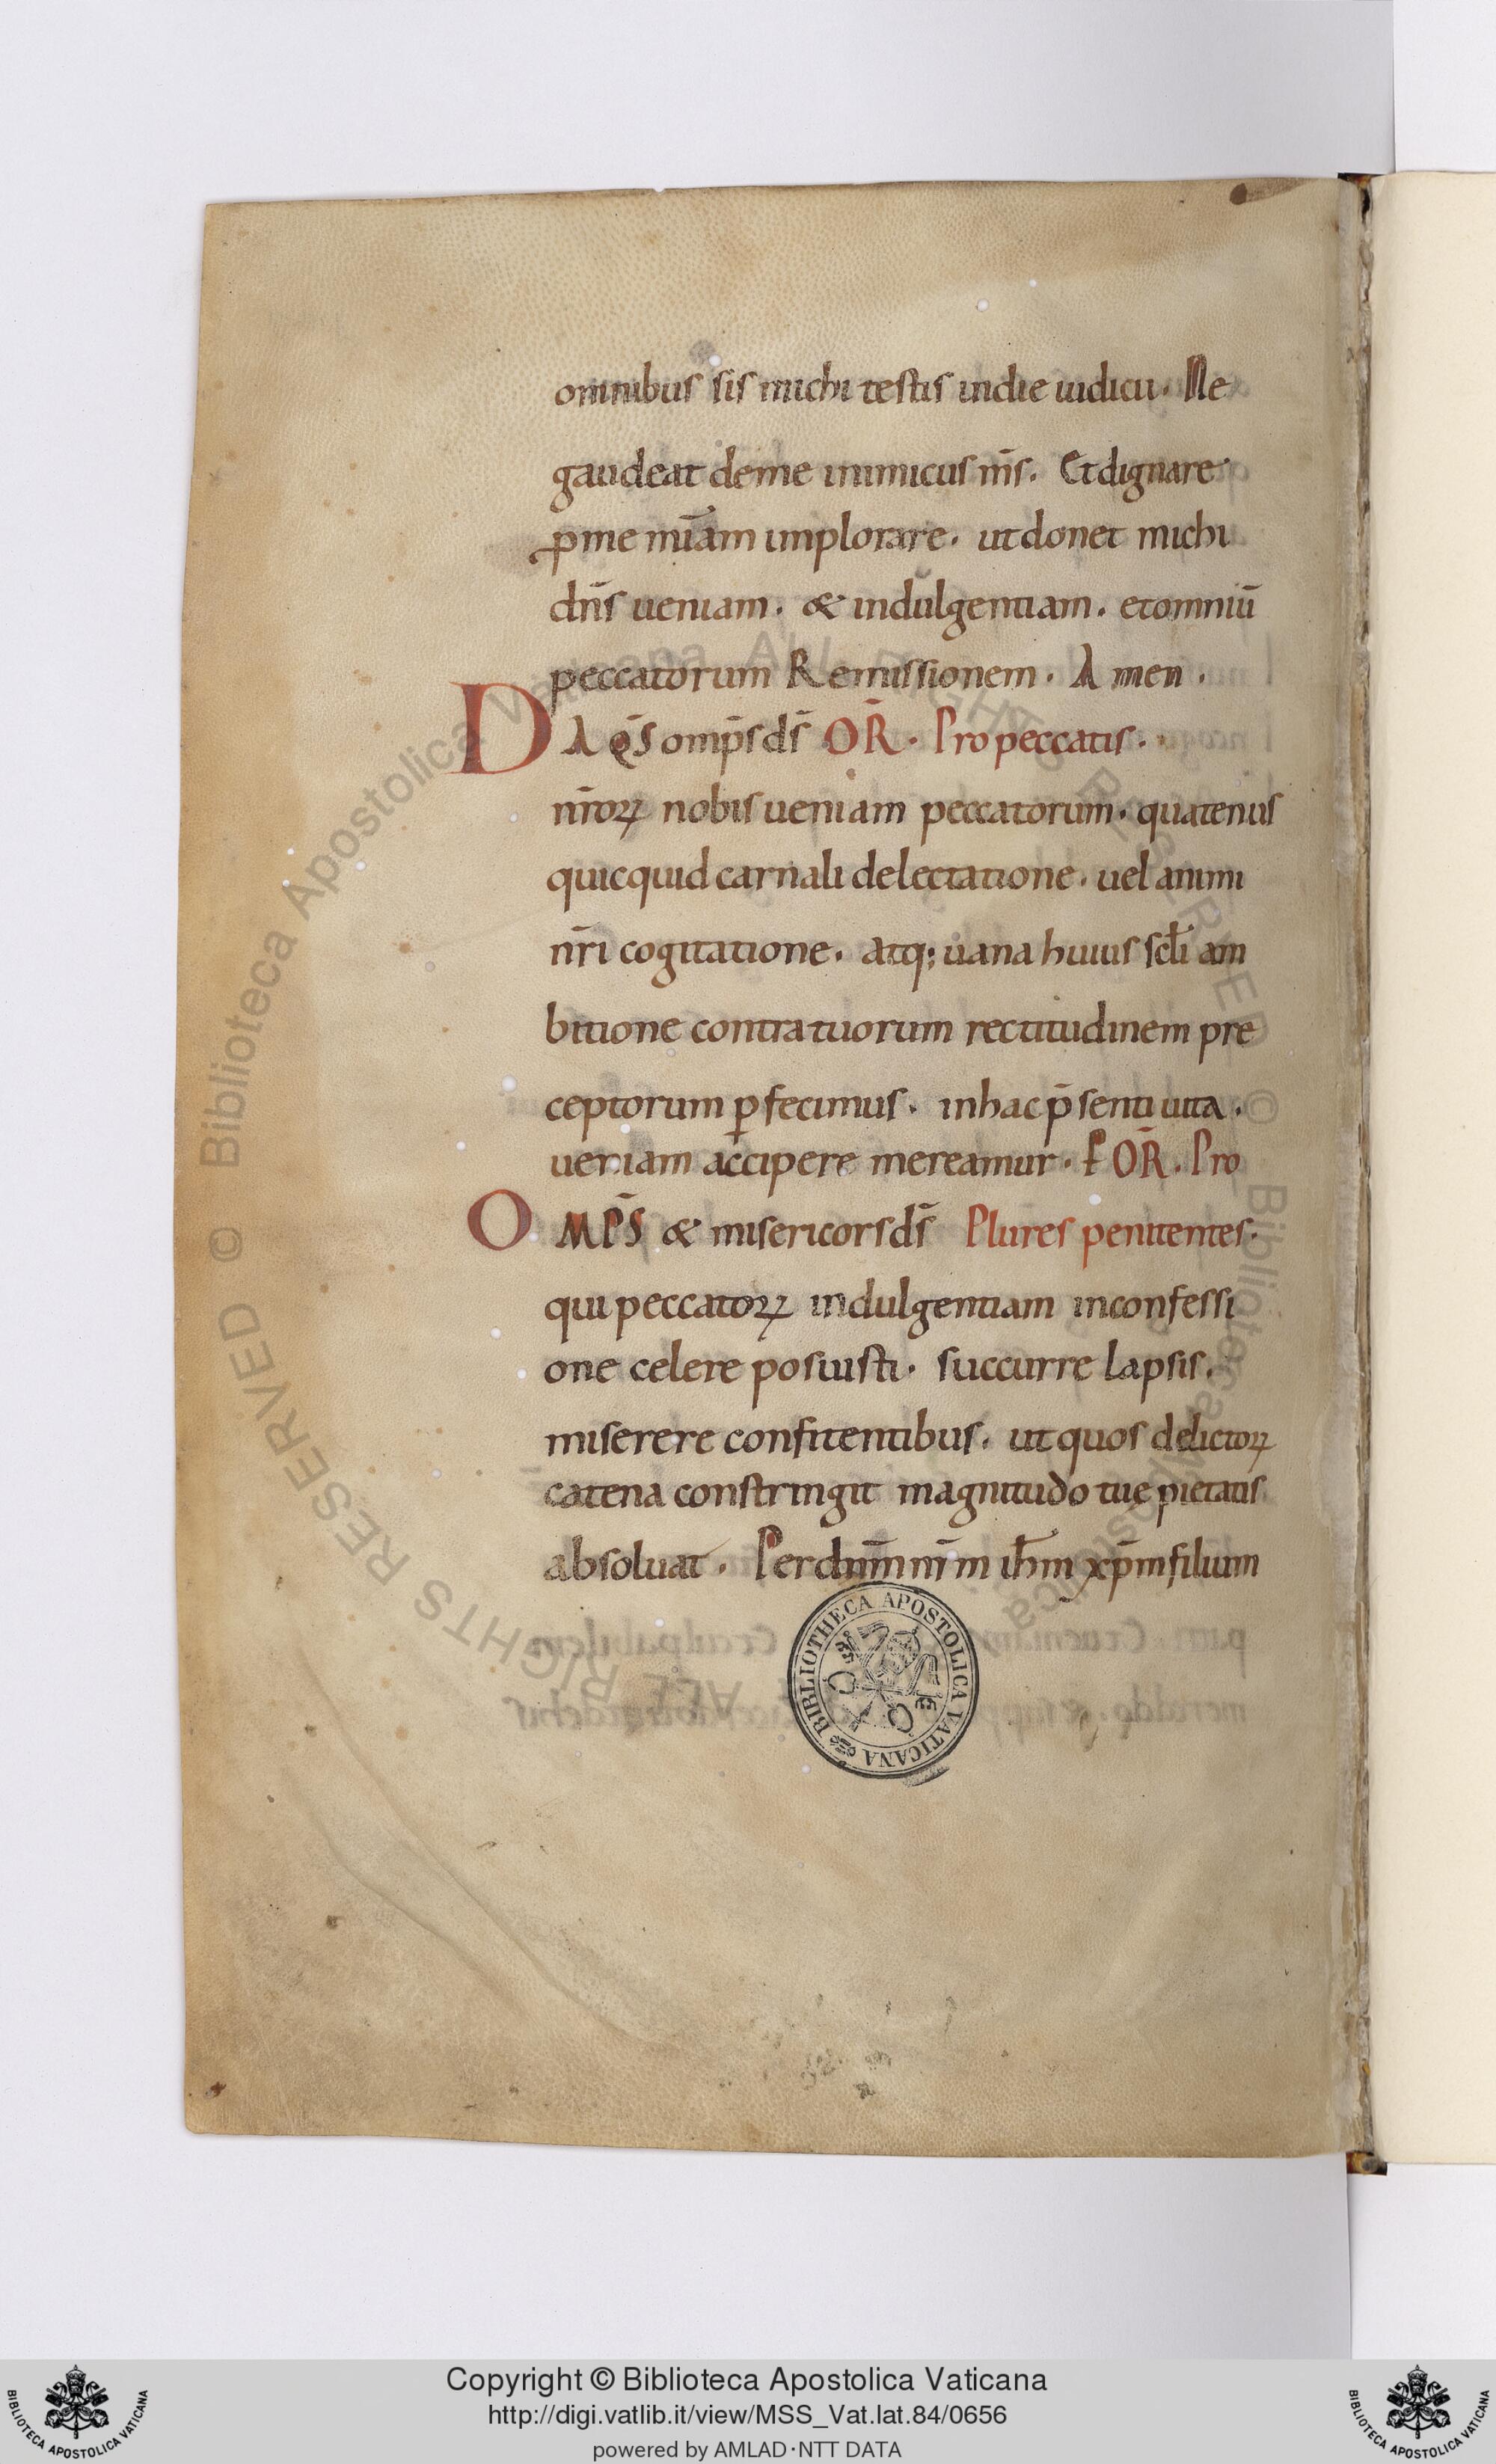 omnibus sis michi testis indie iudicii. Ne
gaudeat deme inimicus nr̄s. Et dignare
ꝓme mīam implorare. utdonet michi
dn̄s ueniam. & indulgentiam. etomniū
peccatorum Remissionem. Amen.
DA qs̄ omp̄s ds̄ OR̄. Pro peccatis.
nr̄oꝝ nobis ueniam peccatorum. quatenus
quicquid carnali delectatione. uel animi
nr̄i cogitatione. atq; uana huius scl̄i am
bitione contra tuorum rectitudinem pre
ceptorum ꝑfecimus. inhac p̄senti uita.
ueniam accipere mereamur. P OR̄. Pro
OMPS̄ & misericors ds̄ Plures penitentes.
qui peccatoꝝ indulgentiam inconfessi
one celere posuisti. succurre lapsis.
miserere confitentibus. ut quos delictoꝝ
catena constringit magnitudo tuę pietatis
absoluat. Per dnm̄ nr̄m ih̄m xp̄m filium
BIBLIOTHECA APOSTOLICA VATICANA
© Biblioteca Apostolica Vaticana ALL RIGHTS RESERVED © Biblioteca Apostolica ALL RIGHTS RESERVED
Copyright © Biblioteca Apostolica Vaticana
http://digi.vatlib.it/view/MSS_Vat.lat.84/0656
powered by AMLAD·NTT DATA
BIBLIOTECA APOSTOLICA VATICANA
BIBLIOTECA APOSTOLICA VATICANA